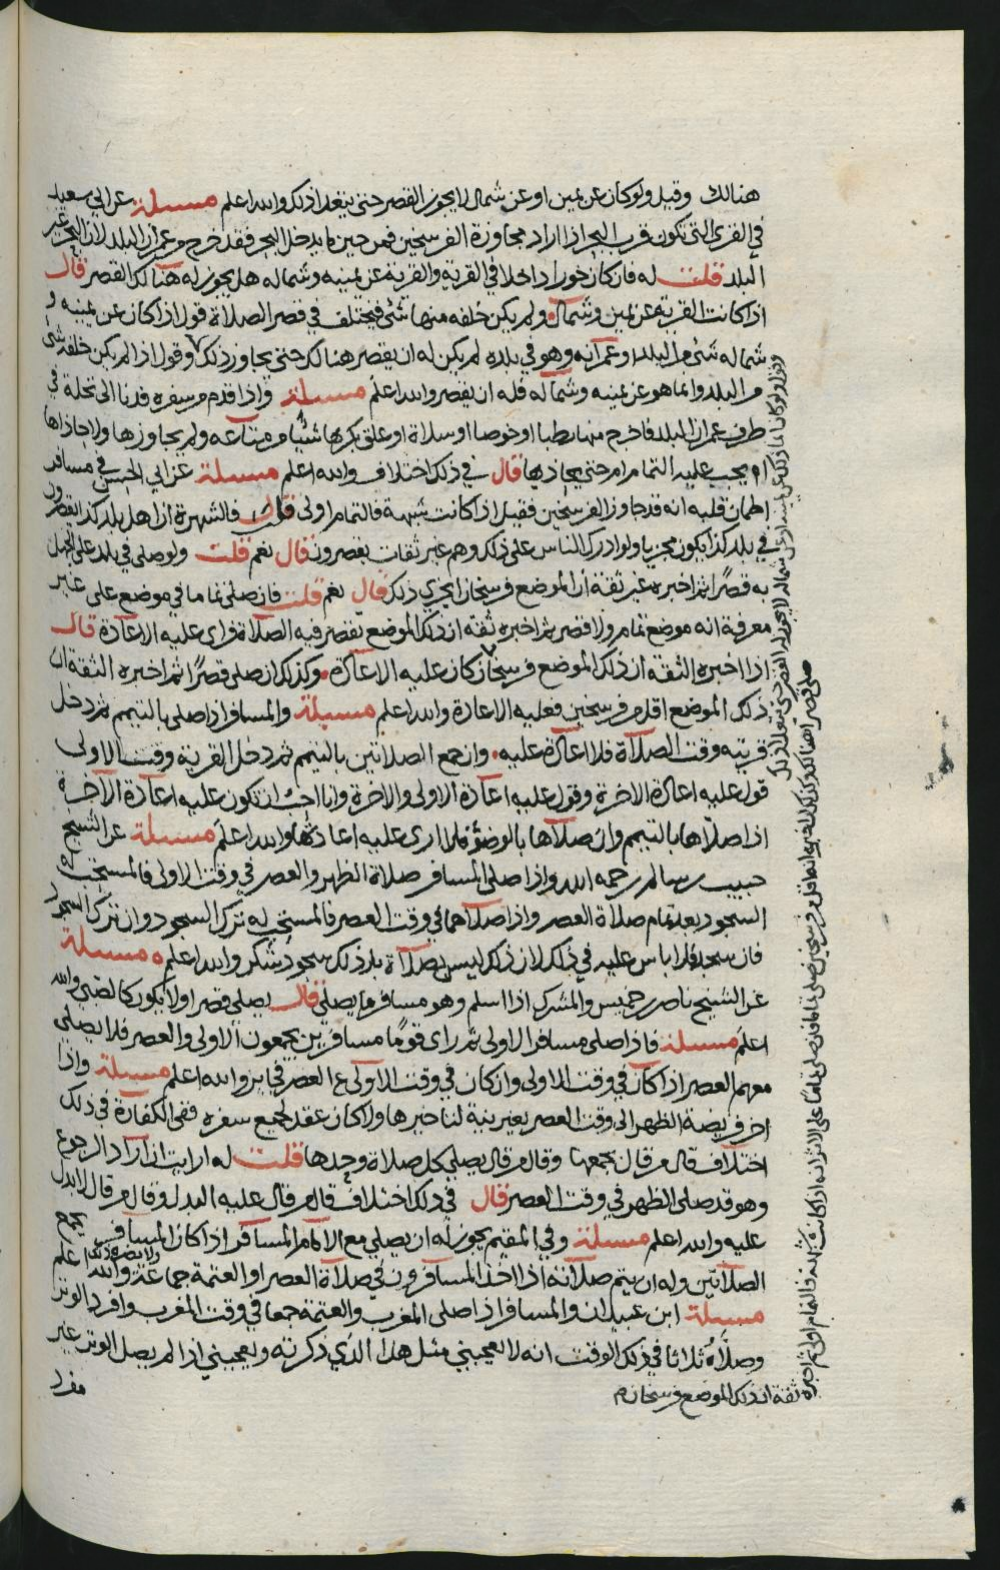 هنالك وقيل ولو كان عن يمين او عن شمال لا يجوز القصر حتى يتعدا ذلك والله اعلم مسئلة عن ابي سعيد
في القرى التي تكون قرب البحر اذا اراد مجاوزة الفرسخين فمن حين ما يدخل البحر فقد خرج من عمران البلد لان البحر غير
البلد قلت له فان كان خورا داخلا في القرية والقرية عن يمينه وشماله هل يجوز له هنالك القصر قال
اذا كانت القرية عن يمين وشمال ولم يكن خلفه منها شئ فيختلف في قصر الصلاة قول اذا كان عن يمينه و
شماله شئ من البلد او عمرانه وهو في بلده لم يكن له ان يقصر هنالك حتى يجاوز ذلك وقول اذا لم يكن خلفه شئ
من البلد وانما هو عن يمينه وشماله فله ان يقصر والله اعلم مسئلة واذا قدم من سفره فدنا الى نخلة في
طرف عمران البلد فاخرج منها رطبا او خوصا او سلاة او علق بكربها شيئا من متاعه ولم يجاوزها ولا حاذاها
ايجب عليه التمام ام حتى يحاذيها قال في ذلك اختلاف والله اعلم مسئلة عن ابي الحسن في مسافر
اطمان قلبه انه قد جاوز الفرسخين فقيل اذا كانت شبهة فالتمام اولى قلت فالشهرة ان اهل بلد كذا يقصرون
في بلد كذا يكون مجزيا ولو ادرك الناس على ذلك وهم غير ثقات يقصرون قال نعم قلت ولو صلى في بلد على الجهل
به قصرا ثم اخبره غير ثقة ان الموضع فرسخان ايجزي ذلك قال نعم قلت فان صلى تماما في موضع على غير
معرفة انه موضع تمام ولا قصر ثم اخبره ثقة ان ذلك الموضع تقصر فيه الصلاة فراى عليه الاعادة قال
اذا اخبره الثقة ان ذلك الموضع فرسخان كان عليه الاعادة وكذلك ان صلى قصرا ثم اخبره الثقة ان
ذلك الموضع اقل من فرسخين فعليه الاعادة والله اعلم مسئلة والمسافر اذا صلى بالتيمم ثم دخل
قريته وقت الصلاة فلا اعادة عليه وان جمع الصلاتين بالتيمم ثم دخل القرية وقت الاولى
قول عليه اعادة الاخرة وقول عليه اعادة الاولى والاخرة وانا احب ان تكون عليه اعادة الاخرة
اذا صلاها بالتيمم وان صلاها بالوضوء فلا ارى عليه اعادتها والله اعلم مسئلة عن الشيخ
حبيب بن سالم رحمه الله واذا صلى المسافر صلاة الظهر والعصر في وقت الاولى فالمستحب له
السجود بعد تمام صلاة العصر واذا صلاهما في وقت العصر فالمستحب له ترك السجود وان ترك السجود
فان سجد فلا باس عليه في ذلك لان ذلك ليس بصلاة بل ذلك سجود شكر والله اعلم ه مسئلة
عن الشيخ ناصر بن خميس والمشرك اذا اسلم وهو مسافر ما يصلي قال يصلي قصرا ولا يكون كالصبي والله
اعلم مسئلة فاذا صلى مسافر الاولى ثم راى قوما مسافرين يجمعون الاولى والعصر فلا يصلي
معهم العصر اذا كان في وقت الاولى وان كان في وقت الاولى ع العصر فجايز والله اعلم مسئلة واذا
اخر فريضة الظهر الى وقت العصر بغير نية لتاخيرها ولا كان عقد لجميع سفره ففي الكفارة في ذلك
اختلاف قال من قال يجمعها وقال من قال يصلي كل صلاة وحدها قلت له ارايت ان اراد الرجوع
وهو قد صلى الظهر في وقت العصر قال في ذلك اختلاف قال من قال عليه البدل وقال من قال لا بدل
عليه والله اعلم مسئلة وفي المقيم يجوز له ان يصلي مع الامام المسافر اذا كان المسافر يجمع
الصلاتين وله ان يتم صلاته اذا اخذ المسافرون في صلاة العصر او العتمة جماعة ولا يضره ذلك والله اعلم
مسئلة ابن عبيدان والمسافر اذا صلى المغرب والعتمة جمعا في وقت المغرب وافرد الوتر
وصلاه ثلاثا في ذلك الوقت انه لا يعجبني مثل هذا الذي ذكرته ويعجبني اذا لم يصل الوتر غير
مفرد
وقول ولو كان ما ذكر عن يمينه او عن شماله لا يجوز له القصر حتى يتعدا ذلك
صلى قصرا هنالك وكذلك ان اخبره انه اقل من فرسخين صلى تماما فان صلى تماما على الاثر انه اذا كانت شبهة فالتمام اولى ثم اخبره
ثقة ان ذلك الموضع فرسخان م